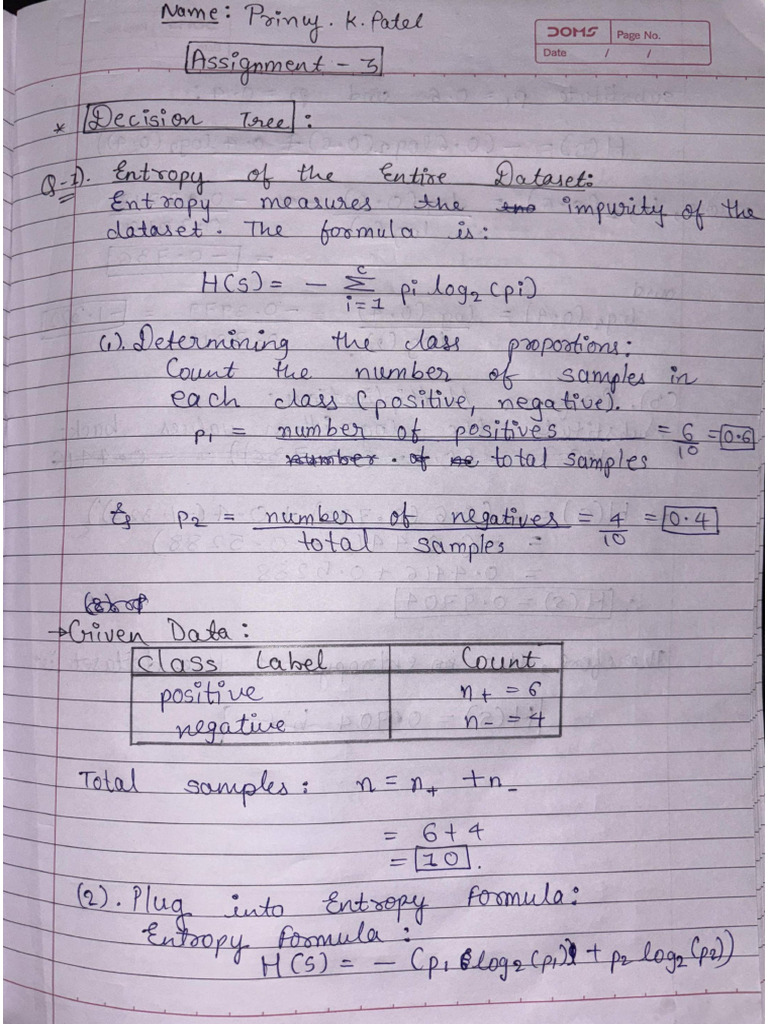 Name: Princy. K. Patel
DOMS Page No.
Date / /
Assignment - 3
* Decision Tree :
Q-1). Entropy of the Entire Dataset:
Entropy measures the impurity of the
dataset. The formula is:
H(S) = - c∑i=1 pi log2 (pi)
(1). Determining the class proportions:
Count the number of samples in
each class (positive, negative).
p1 = number of positives / total samples = 6/10 = 0.6
& p2 = number of negatives / total samples = 4/10 = 0.4
→ Given Data:
Class Label Count
positive n+ = 6
negative n- = 4
Total samples: n = n+ + n-
= 6+4
= 10.
(2). Plug into Entropy formula:
Entropy formula:
H(S) = - (p1 log2(p1) + p2 log2(p2))